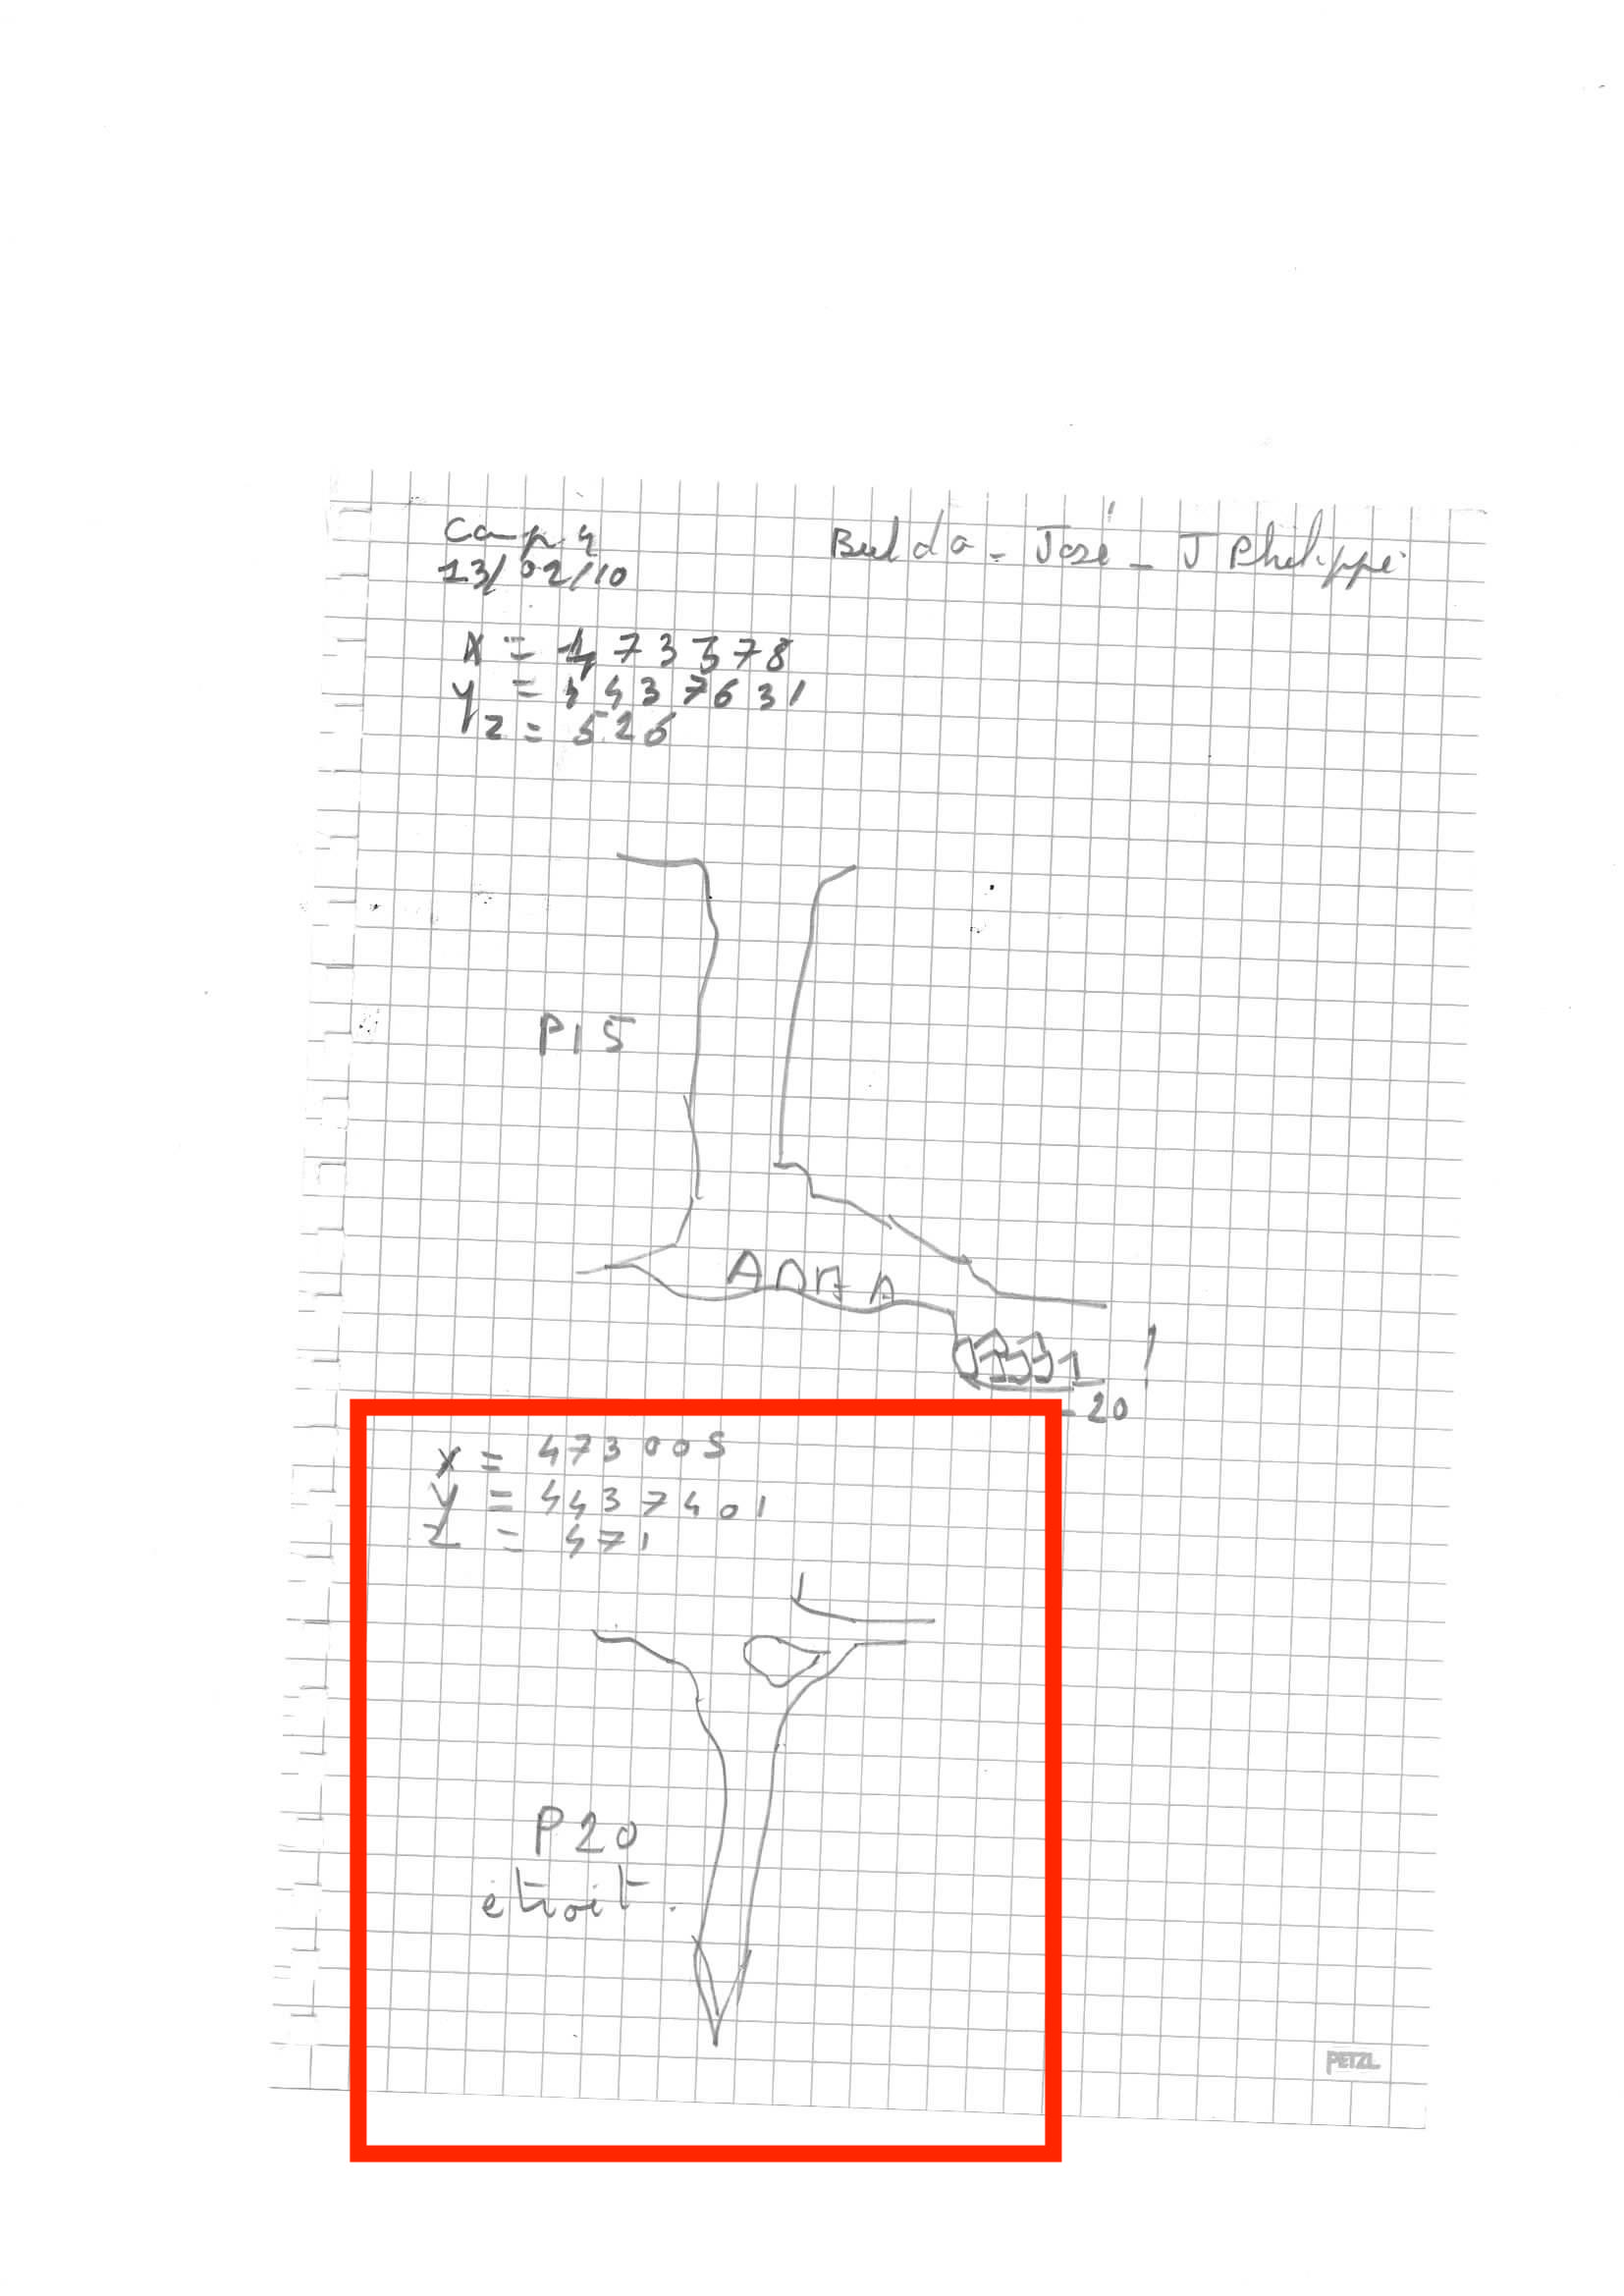 Camp 4
13/02/10
Bulda - José - J Philippe
X = 473378
Y = 4437631
Z = 526
P15
- 20
X = 473005
Y = 4437401
Z = 471
P20
étroit.
PETZL